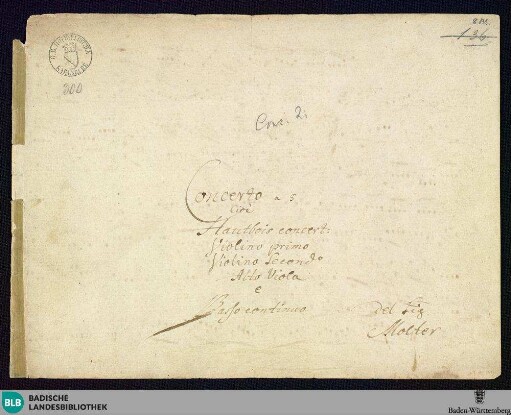 136
300
Conc. 2.
Concerto a 5.
Cioè
Hautbois concert:
Violino primo
Violino Secondo
Alto Viola
e
Basso continuo
Del Sig
Molter
BLB BADISCHE
LANDESBIBLIOTHEK
Baden-Württemberg